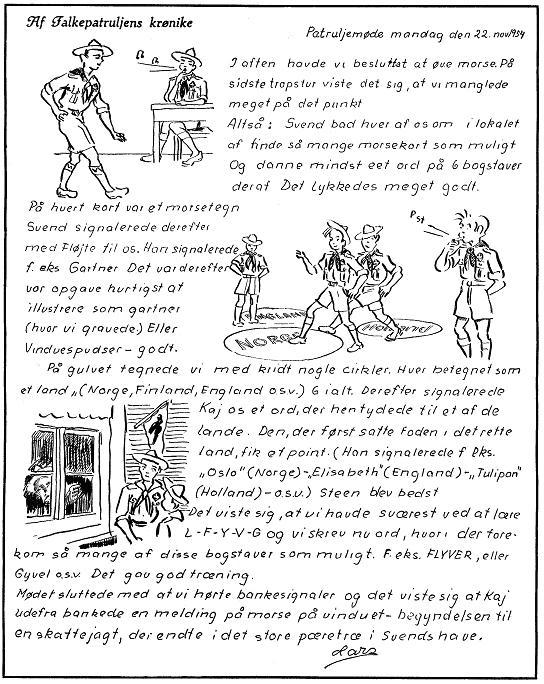 Af Falkepatruljens krønike
Patruljemøde mandag den 22. nov 1954
I aften havde vi besluttet at øve morse. På
sidste tropstur viste det sig, at vi manglede
meget på det punkt
Altså: Svend bad hver af os om i lokalet
at finde så mange morsekort som muligt
Og danne mindst eet ord på 6 bogstaver
deraf Det lykkedes meget godt.
På hvert kort var et morsetegn
Svend signalerede derefter
med Fløjte til os. Han signalerede
f. eks Gartner Det var derefter
vor opgave hurtigst at
illustrere som gartner
(hvor vi gravede.) Eller
Vinduespudser - godt.
Pst
ENGLAND
NORGE
På gulvet tegnede vi med kridt nogle cirkler. Hver betegnet som
et land „(Norge, Finland, England o.s.v.) 6 ialt. Derefter signalerede
Kaj os et ord, der hentydede til et af de
lande. Den, der først satte Foden i det rette
land, fik et point. (Han signalerede f Eks.
„Oslo" (Norge) - „Elisabeth" (England) - „Tulipan"
(Holland) - o.s.v.) Steen blev bedst
Det viste sig, at vi havde sværest ved at lære
L-F-Y-V-G og vi skrev nu ord, hvori der fore-
kom så mange af disse bogstaver som muligt. F. eks. FLYVER, eller
Gyvel o.s.v. Det gav god træning.
Mødet sluttede med at vi hørte bankesignaler og det viste sig at Kaj
udefra bankede en melding på morse på vinduet - begyndelsen til
en skattejagt, der endte i det store pæretræ i Svends have.
Lars